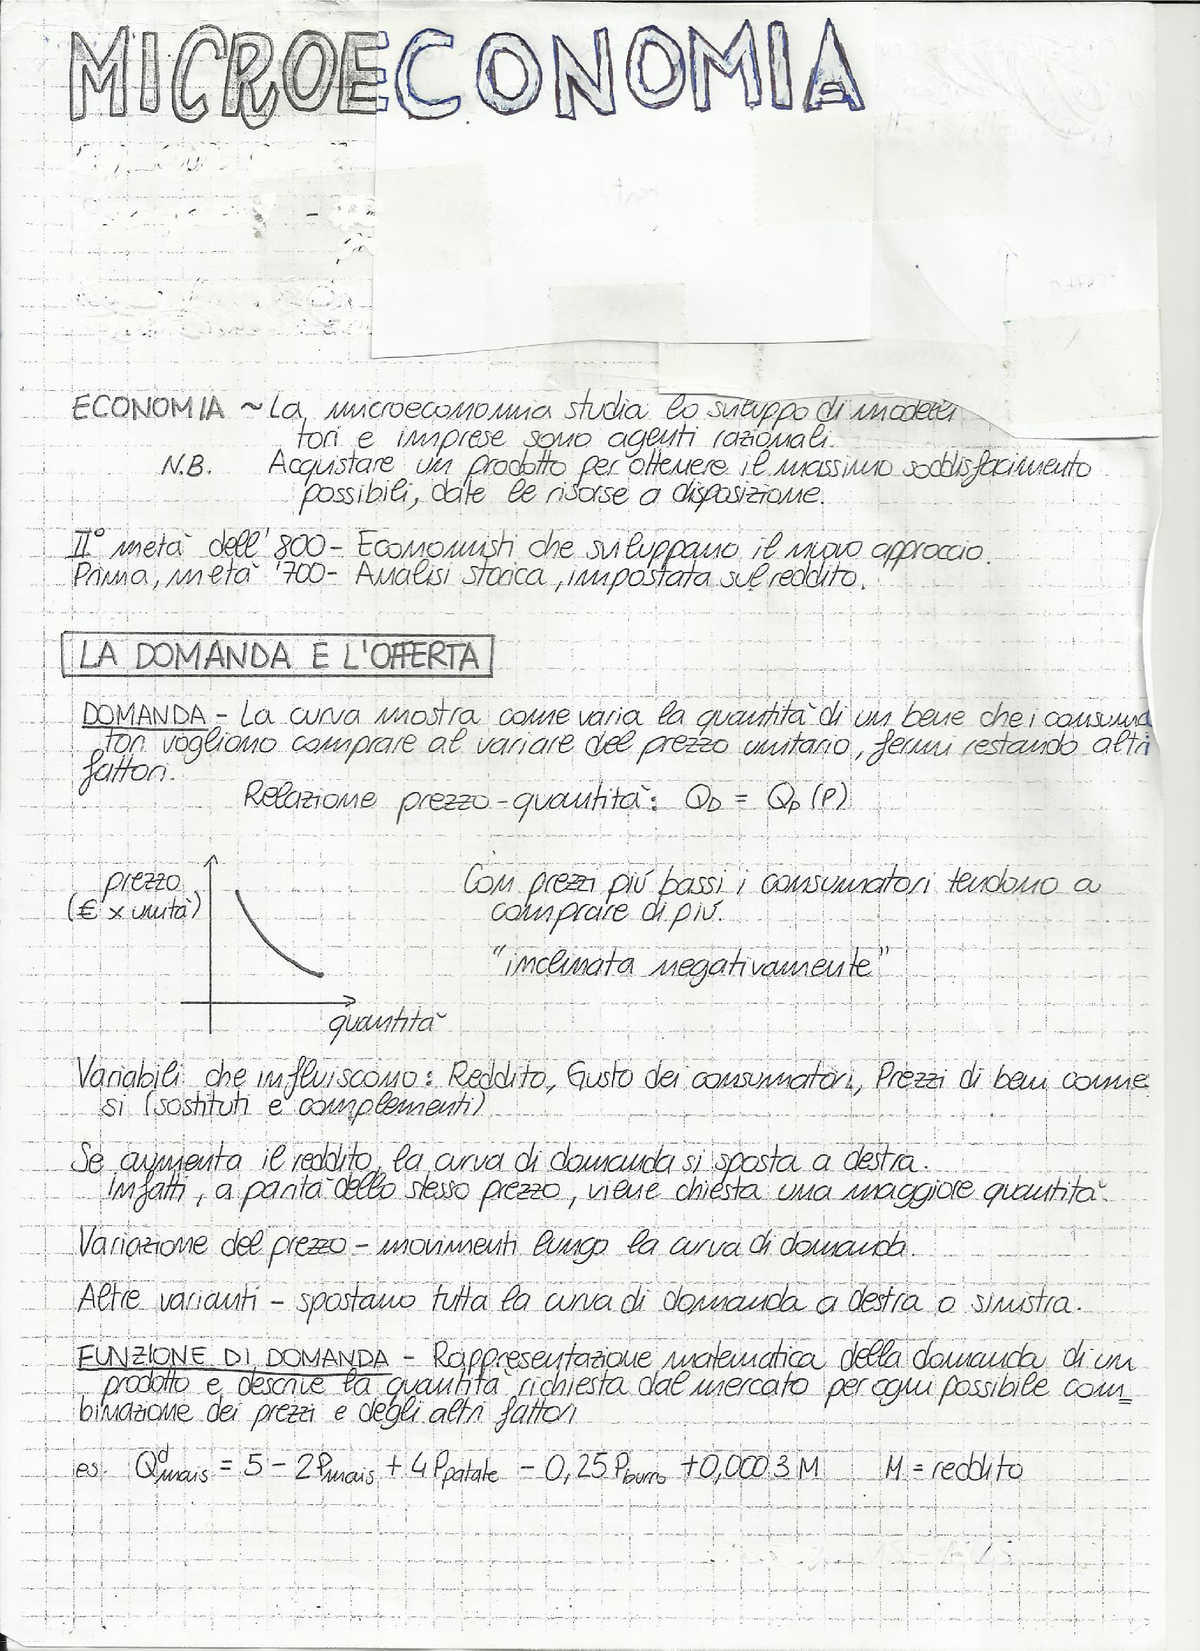 MICROECONOMIA
ECONOMIA ~ La microeconomia studia lo sviluppo di modelli
tori e imprese sono agenti razionali.
N.B. Acquistare un prodotto per ottenere il massimo soddisfacimento
possibili, date le risorse a disposizione.
II° metà dell'800 - Economisti che sviluppano il nuovo approccio.
Prima, metà '700 - Analisi storica, impostata sul reddito.
LA DOMANDA E L'OFFERTA
DOMANDA - La curva mostra come varia la quantità di un bene che i consuma
tori vogliono comprare al variare del prezzo unitario, fermi restando altri
fattori.
Relazione prezzo-quantità: QD = QD (P)
prezzo
(€ x unità)
Con prezzi piú bassi i consumatori tendono a
comprare di piú.
"inclinata negativamente"
quantità
Variabili che influiscono: Reddito, Gusto dei consumatori, Prezzi di beni conne
si (sostituti e complementi)
Se aumenta il reddito, la curva di domanda si sposta a destra.
Infatti, a parità dello stesso prezzo, viene chiesta una maggiore quantità.
Variazione del prezzo - movimenti lungo la curva di domanda.
Altre varianti - spostano tutta la curva di domanda a destra o sinistra.
FUNZIONE DI DOMANDA - Rappresentazione matematica della domanda di un
prodotto e descrive la quantità richiesta dal mercato per ogni possibile com=
binazione dei prezzi e degli altri fattori
es. Qᵈmais = 5 - 2Pmais + 4Ppatate - 0,25Pburro + 0,0003M M = reddito